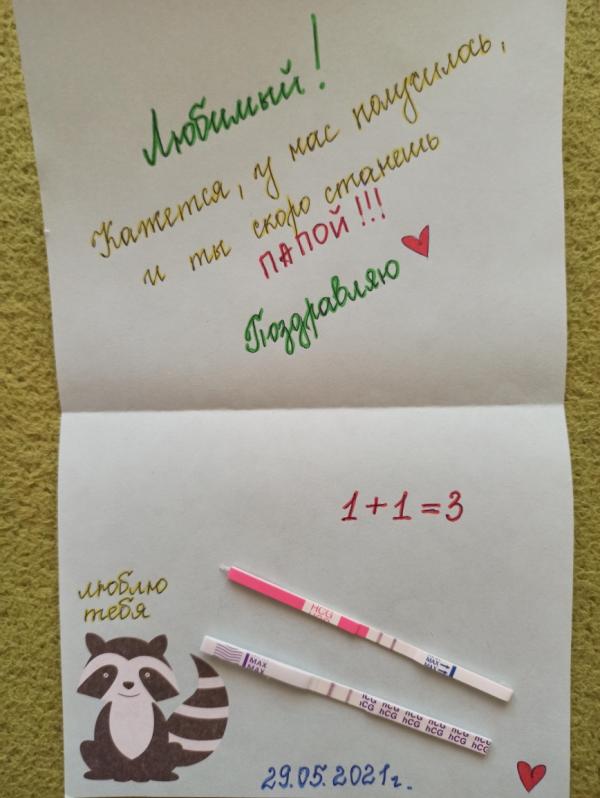 Любимый!
Кажется, у нас получилось,
и ты скоро станешь
ПАПОЙ!!!
Поздравляю
1+1=3
люблю
тебя
HCG
MAX
MAX
MAX
MAX
hCG hCG hCG hCG hCG
hCG hCG hCG hCG hCG
29.05.2021г.